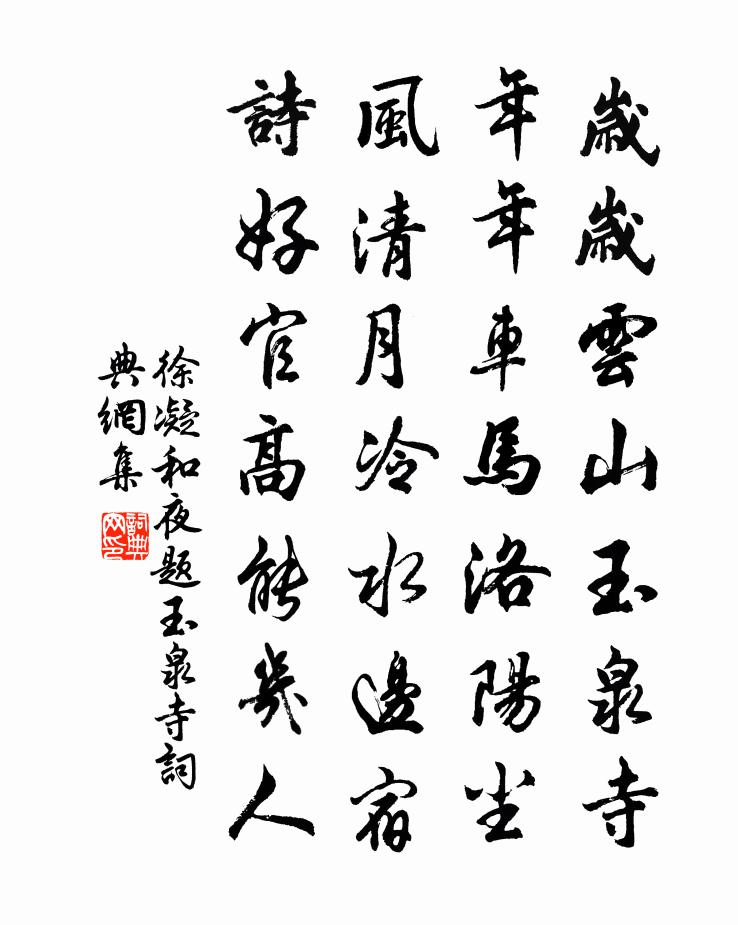 歲歲雲山玉泉寺
年年車馬洛陽尘
風清月冷水邊宿
詩好官高能幾人
徐凝和夜题玉泉寺詞
典網集
詞典
网印